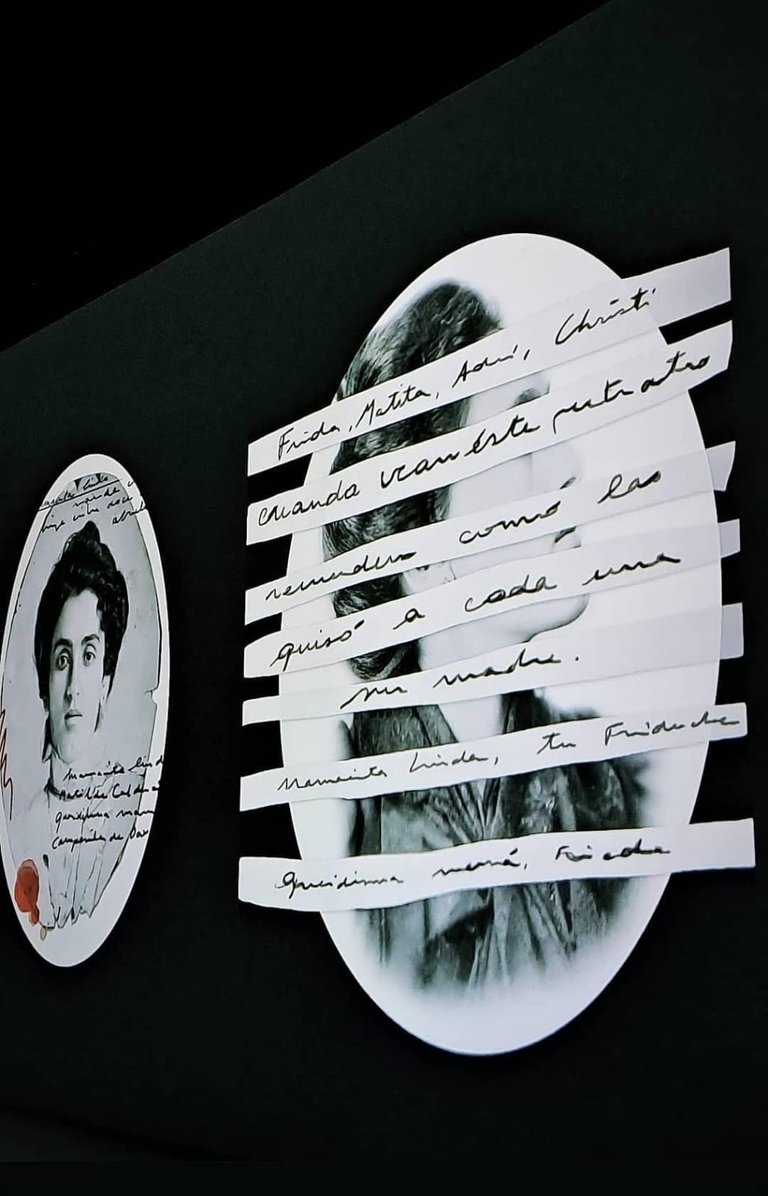 Frida, Matita, Adri, Christi
cuando vean éste retrato
recuerden comó las
quisó a cada una
su madre.
Mamacita linda, tu Friducha
Queridisima mamá, Frieda
Mamacita Lind
Matilde Calde
queridisima mam
campanita de Oax